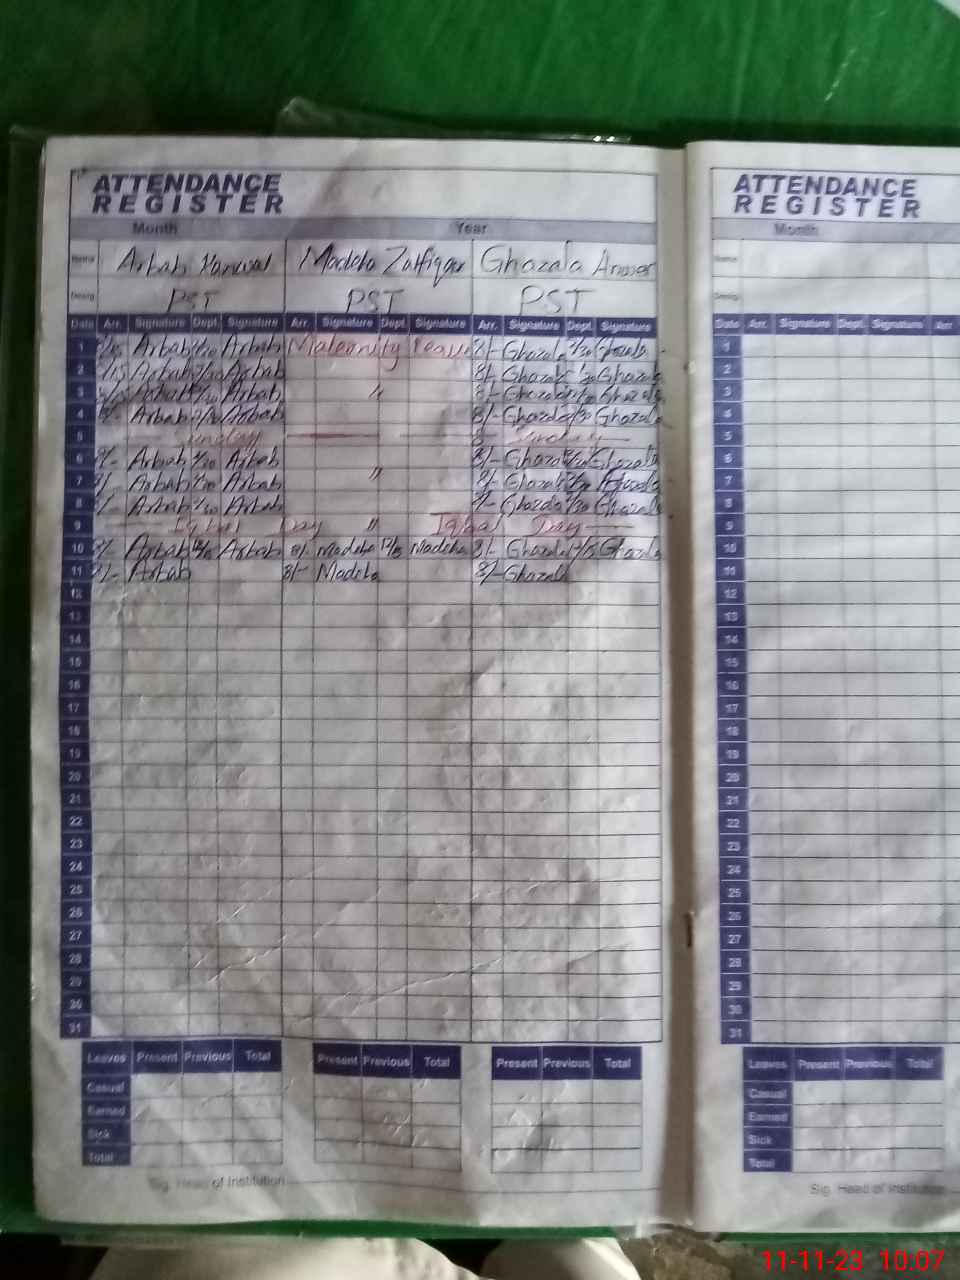 ATTENDANCE ATTENDANCE
REGISTER REGISTER
Month Year Month
Name Arbab Kanwal Madeha Zulfiqar Ghazala Anwer Name
Desig PST PST PST Desig
Date Arr. Signature Dept. Signature Arr. Signature Dept. Signature Arr. Signature Dept. Signature Date Arr. Signature Dept. Signature Arr
1 Arbab Arbab Maternity Leave 8/- Ghazala Ghazala 1
2 Arbab Arbab 8/- Ghazala Ghazala 2
3 Arbab Arbab " 8/- Ghazala Ghazala 3
4 8/- Arbab Arbab 8/- Ghazala Ghazala 4
5 Sunday Sunday 5
6 8/- Arbab Arbab 8/- Ghazala Ghazala 6
7 8/- Arbab Arbab " 8/- Ghazala Ghazala 7
8 8/- Arbab Arbab 8/- Ghazala Ghazala 8
9 Iqbal Day " Iqbal Day 9
10 8/- Arbab Arbab 8/- Madeha 12/15 Madeha 8/- Ghazala Ghazala 10
11 8/- Arbab 8/- Madeha 8/- Ghazala 11
12 12
13 13
14 14
15 15
16 16
17 17
18 18
19 19
20 20
21 21
22 22
23 23
24 24
25 25
26 26
27 27
28 28
29 29
30 30
31 31
Leaves Present Previous Total Present Previous Total Present Previous Total Leaves Present Previous Total
Casual Casual
Earned Earned
Sick Sick
Total Total
Sig. Head of Institution Sig. Head of Institution
11-11-23 10:07